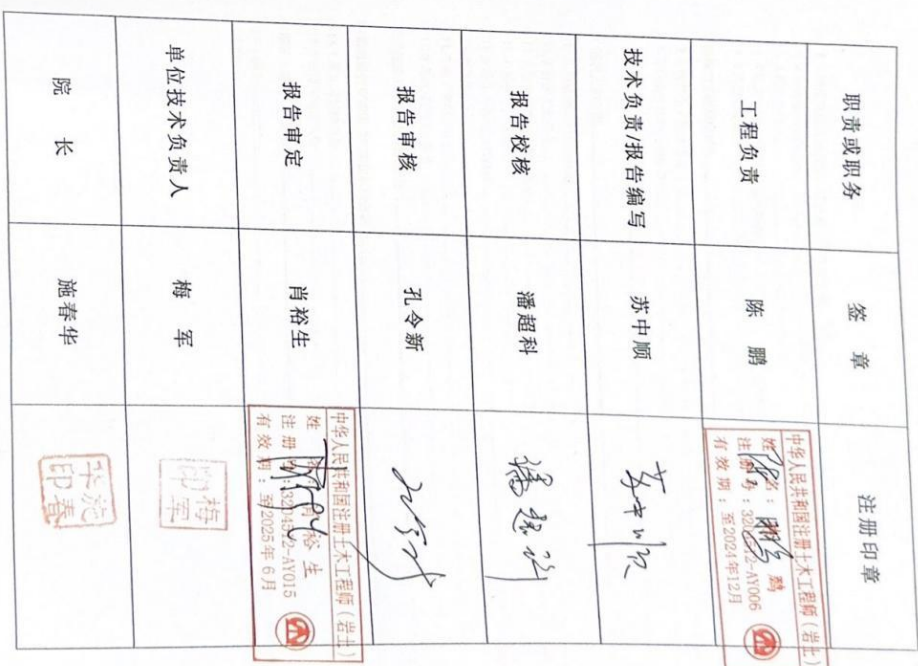 职责或职务 签 章 注册印章
工程负责 陈 鹏
中华人民共和国注册土木工程师（岩土）
姓 名：陈 鹏
AY006
有效期：至2024年12月
技术负责/报告编写 苏中顺 苏中顺
报告校核 潘超科 潘超科
报告审核 孔令新 孔令新
报告审定 肖裕生
中华人民共和国注册土木工程师（岩土）
姓 名：肖裕生
AY015
有效期：至2025年6月
单位技术负责人 梅 军 梅军印
院 长 施春华 施春华印